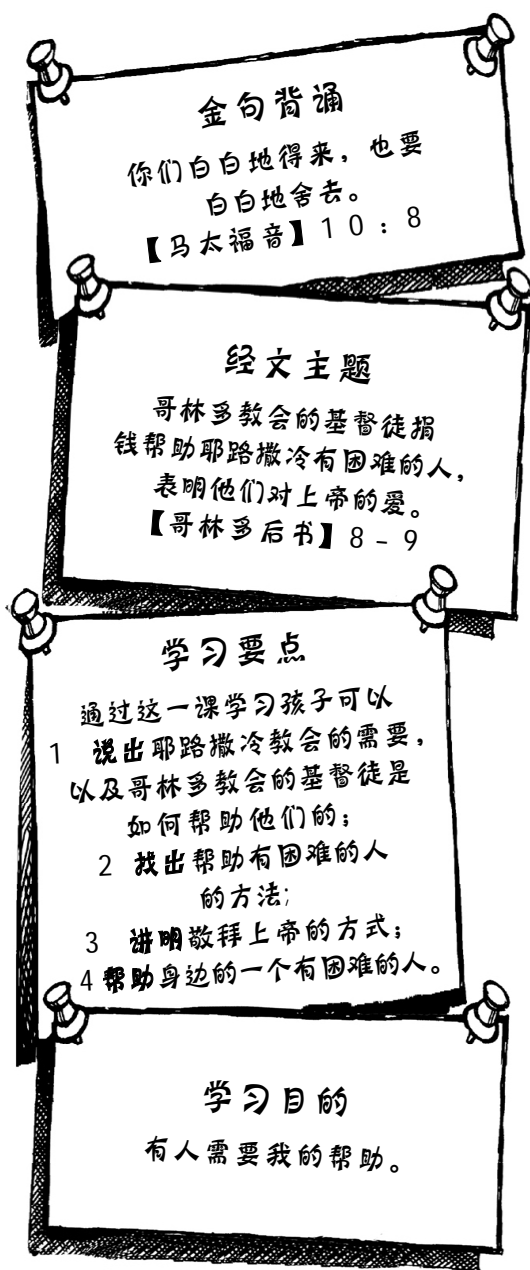 金句背诵
你们白白地得来，也要
白白地舍去。
【马太福音】10：8
经文主题
哥林多教会的基督徒捐
钱帮助耶路撒冷有困难的人，
表明他们对上帝的爱。
【哥林多后书】8-9
学习要点
通过这一课学习孩子可以
1 说出耶路撒冷教会的需要，
以及哥林多教会的基督徒是
如何帮助他们的；
2 找出帮助有困难的人
的方法;
3 讲明敬拜上帝的方式；
4帮助身边的一个有困难的人。
学习目的
有人需要我的帮助。